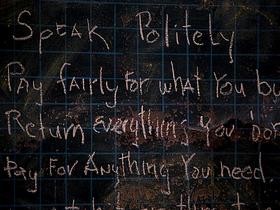 Speak Politely
Pay fairly for what You bu
Return everything you Do
Pay For Anything You need.